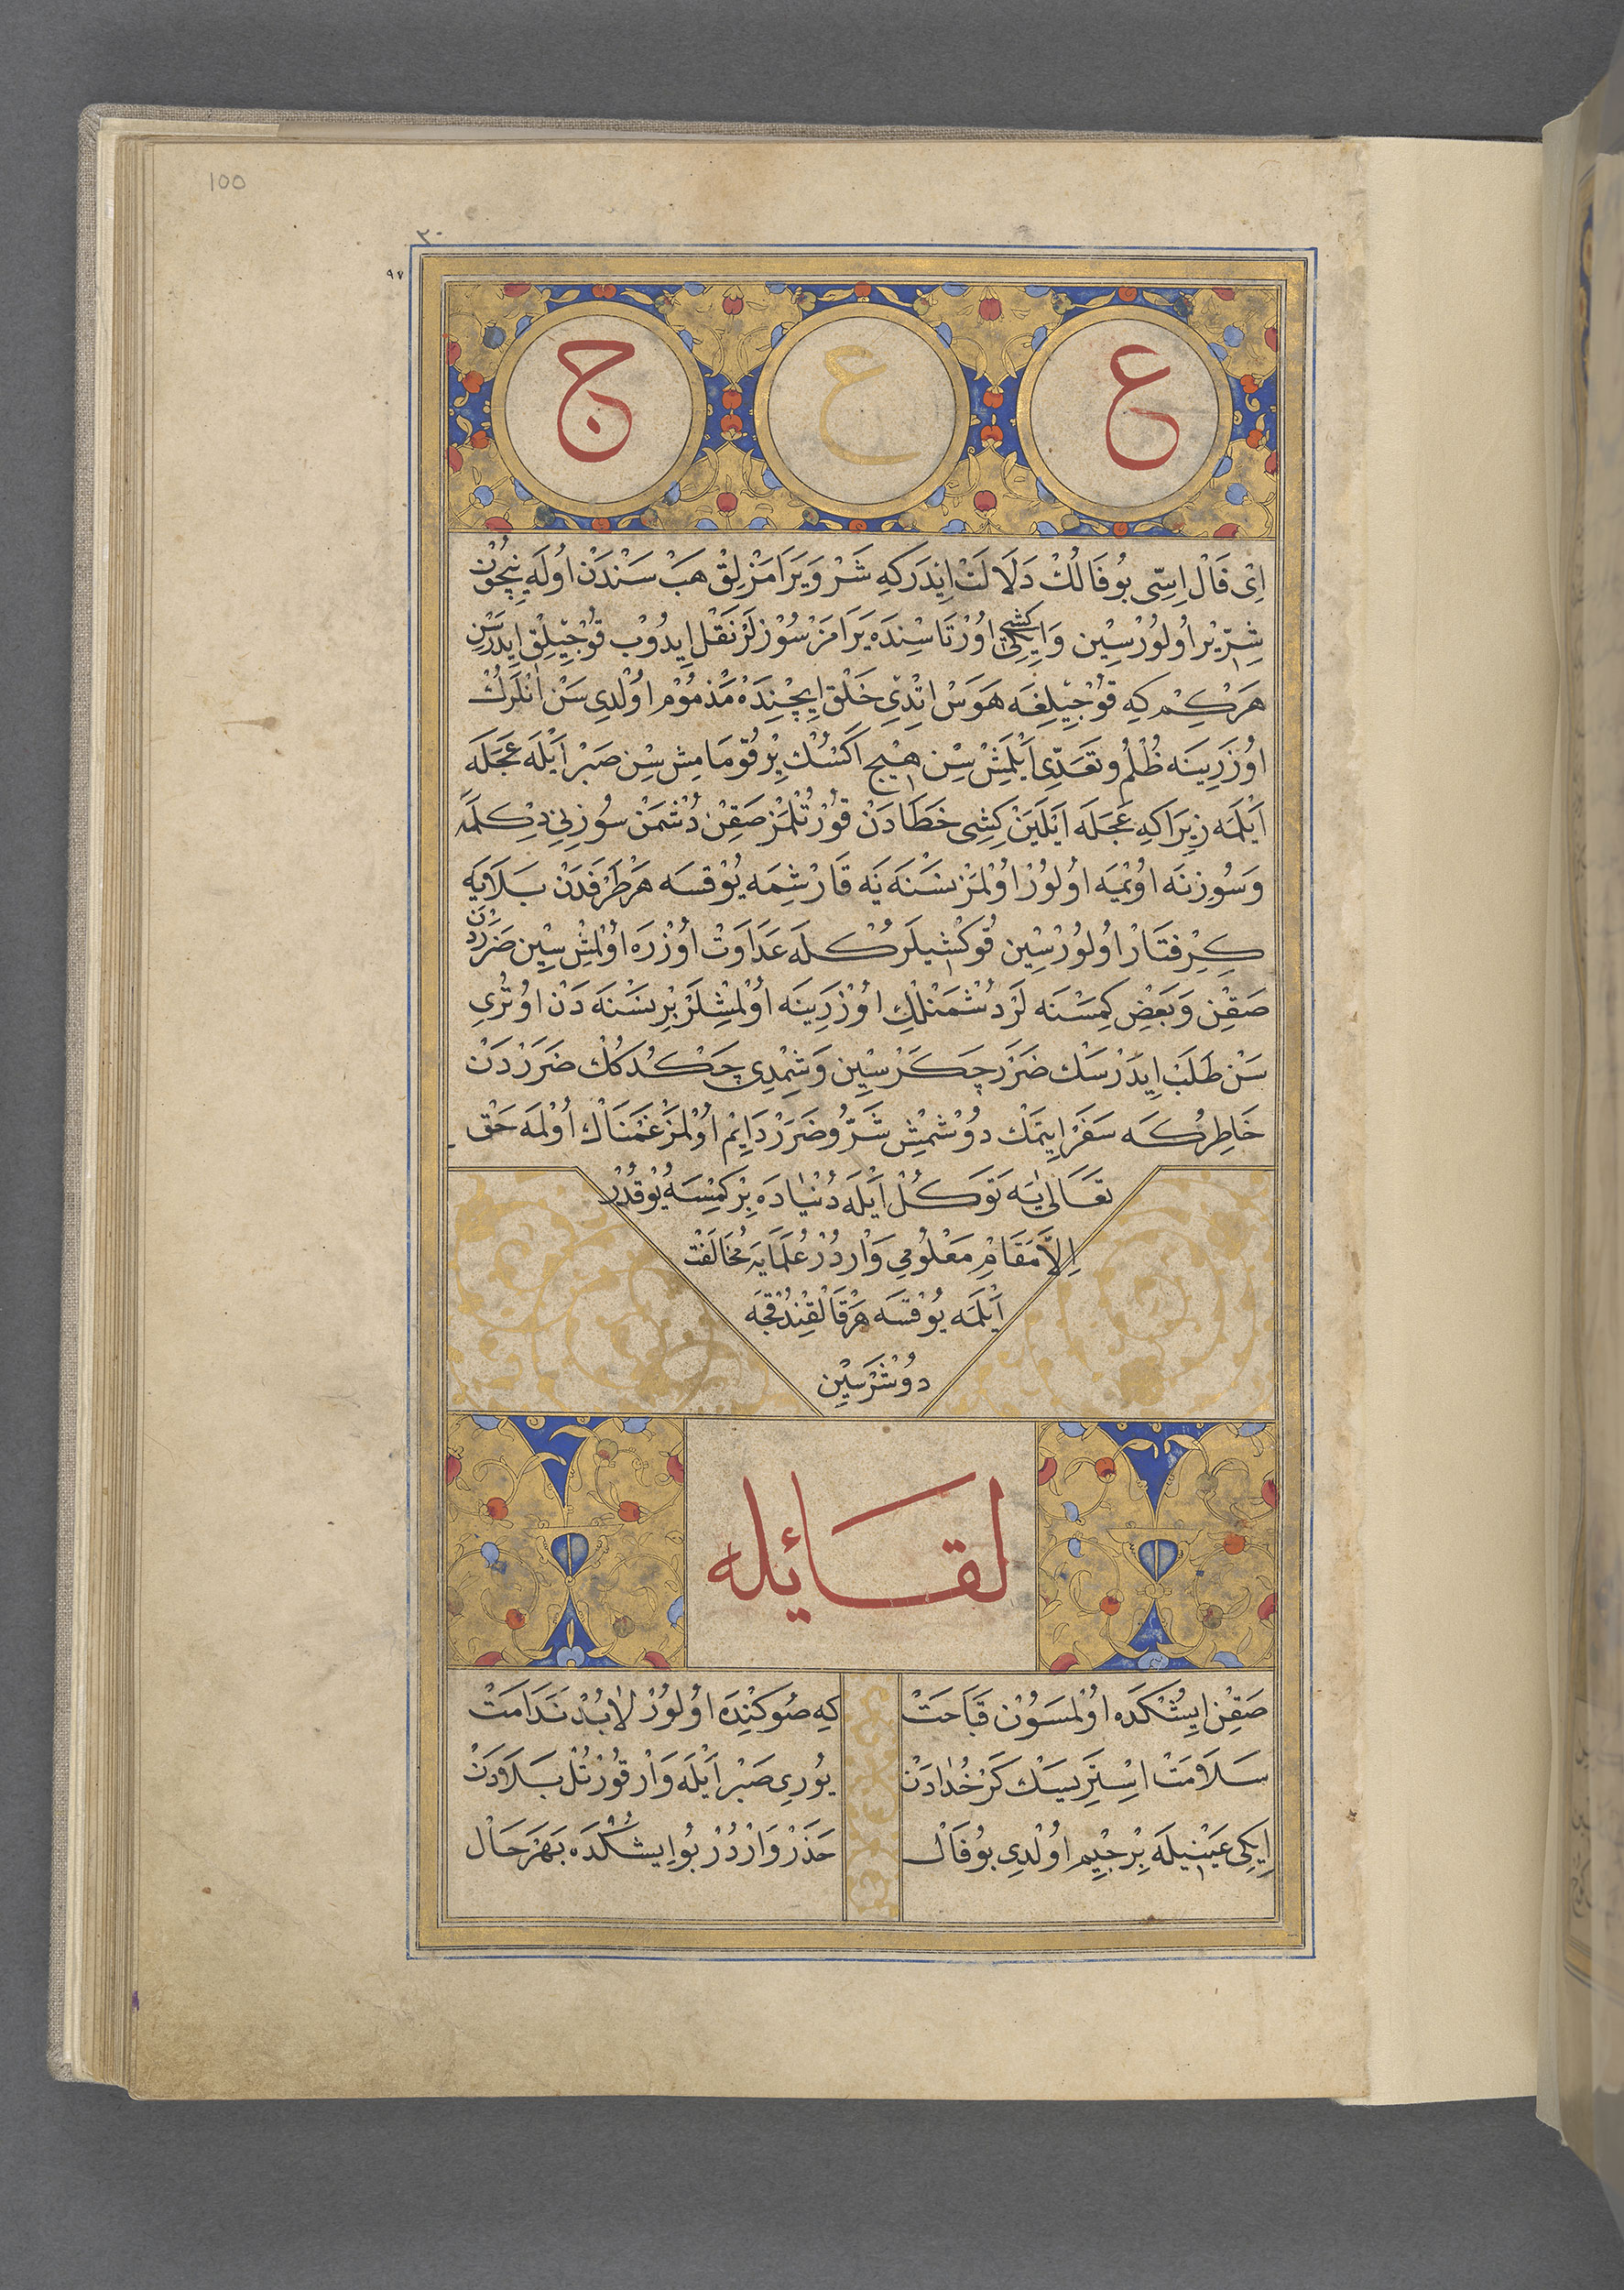 100
۲۰
۹۷
ع ع ج
اِیْ فَالْ اِسِّی بُو فَالُكْ دَلَالَتْ اِیدَرَكِهِ شَرْ وَیَرَامَزْلِقْ هَبْ سَنْدَنْ اُولَهِ نِیچُوْنْ
شِرِّیْر اُولُورْسِیْن وَاِیكِی كِشِی اوُرْتَاسِنْدَه یَرَامَزْ سُوْزلَرْ نَقْل اِیدُوْبْ قوُجِیْلِقْ اِیدَرْسِنْ
هَرْكِمْ كِهِ قوُجِیْلِغَه هَوَسْ اتْدِیْ خَلْق اِیچِنْدَهْ مَذْمُوْم اوُلْدِی سَنْ اٰنْلَرُكْ
اوُزَرِینَه ظُلْمُ و تَعَدِّی اَیْلَمِشْ سِنْ هِیْچ اَكْسُكْ یِرْ قوُمَامِش سِنْ صَبْر اَیْلَه عَجَلَه
اَیْلَمَه زِیرَا كِهِ عَجَلَه اَیْلَیَنْ كِشِی خَطَادَنْ قوُرْتُلْمَزْ صَقِنْ دُشْمَنْ سُوزِنِی دِكْلَمَه
وَسُوزِنَه اوُیْمَیَه اُولُورْ اوُلْمَزْ نَسْنَه یَه قَارِشِمَه یوُقْسَه هَرْ طَرَفْدَنْ بَلَایَه
كِرِفتَارْ اُولُورْسِیْن قوُكْشِیلَرُكْلَه عَدَاوَتْ اُوزْرَه اوُلْمِشْ سِیْن ضَرَرْدَنْ
صَقِنْ وَبَعْضِ كِمِسْنَه لَرْ دُشْمَنْلِكِ اوُزْرِینَه اوُلْمِشْلَرْ بِرْ نَسْنَه دَنْ اوُتُرِی
سَنْ طَلَبْ اِیدَرْسَكْ ضَرَرْ چَكَرْسِیْن وَشِمْدِی چَكْدُكُكْ ضَرَرْدَنْ
خَاطِرُكَه سَفَرْ اِیتْمَكْ دوُشْمِشْ شَرّ و ضَرَرْ دَایِمْ اوُلْمَزْ غَمْنَاكْ اوُلْمَه حَقْ
تَعَالٰی یَه تَوَكُّلْ اَیْلَه دُنْیَادَه بِرْ كِمْسَه یوُقْدُرْ
اِلَّا مَقَامِ مَعْلُومِی وَارْدُرْ عُلَمَایَه مُخَالَفَتْ
اَیْلَمَه یوُقْسَه هَرْ قَالْقِنْدُقْجَه
دوُشَرْسِیْن
لقائله
صَقِنْ اِیشُكْدَه اوُلْمَسُوْن قَبَاحَتْ كِهِ صُوكِنْدَه اُولُورْ لَابُدْ نَدَامَتْ
سَلَامَتْ اسْتِرَیسَكْ كَرْ خُدَادَنْ یوُرِی صَبْر اَیْلَه وَارْ قوُرْتُلْ بَلَادَنْ
اِیكِی عَیْنِیلَه بِرْ جِیْم اوُلْدِی بُو فَالْ حَذَرْ وَارْدُرْ بُو اِیشُكْدَه بَهَرْ حَالْ